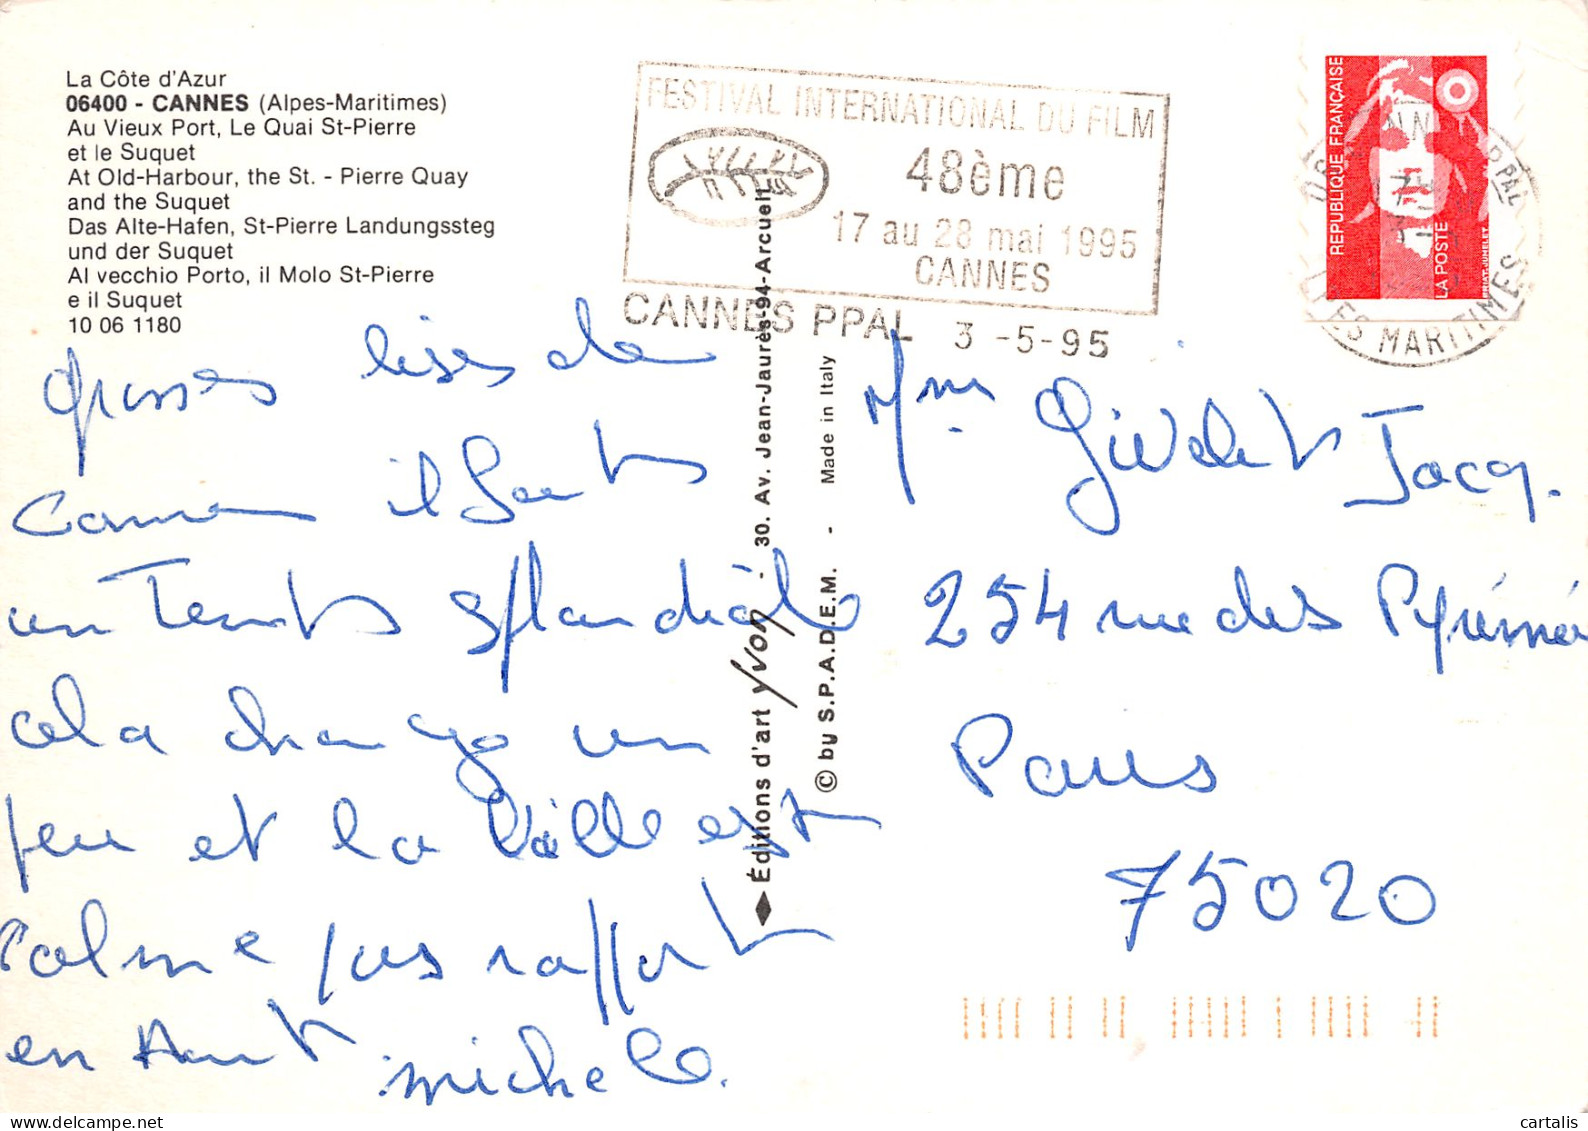 La Côte d'Azur
06400 - CANNES (Alpes-Maritimes)
Au Vieux Port, Le Quai St-Pierre
et le Suquet
At Old-Harbour, the St. - Pierre Quay
and the Suquet
Das Alte-Hafen, St-Pierre Landungssteg
und der Suquet
Al vecchio Porto, il Molo St-Pierre
e il Suquet
10 06 1180
FESTIVAL INTERNATIONAL DU FILM
48ème
17 au 28 mai 1995
CANNES
CANNES PPAL 3 -5-95
REPUBLIQUE FRANÇAISE
LA POSTE
PPAL
MARITIMES
grosses bises de
Cannes il fait
un Temps splendide
cela change un
peu et la Ville est
Calme par rapport
en Août
michele.
◆ Éditions d'art Yvon - 30. Av. Jean-Jaurès-94-Arcueil
© by S.P.A.D.E.M. - Made in Italy
Mme Givelet Jacq.
254 rue des Pyrénées
Paris
75020
cartalis
delcampe.net